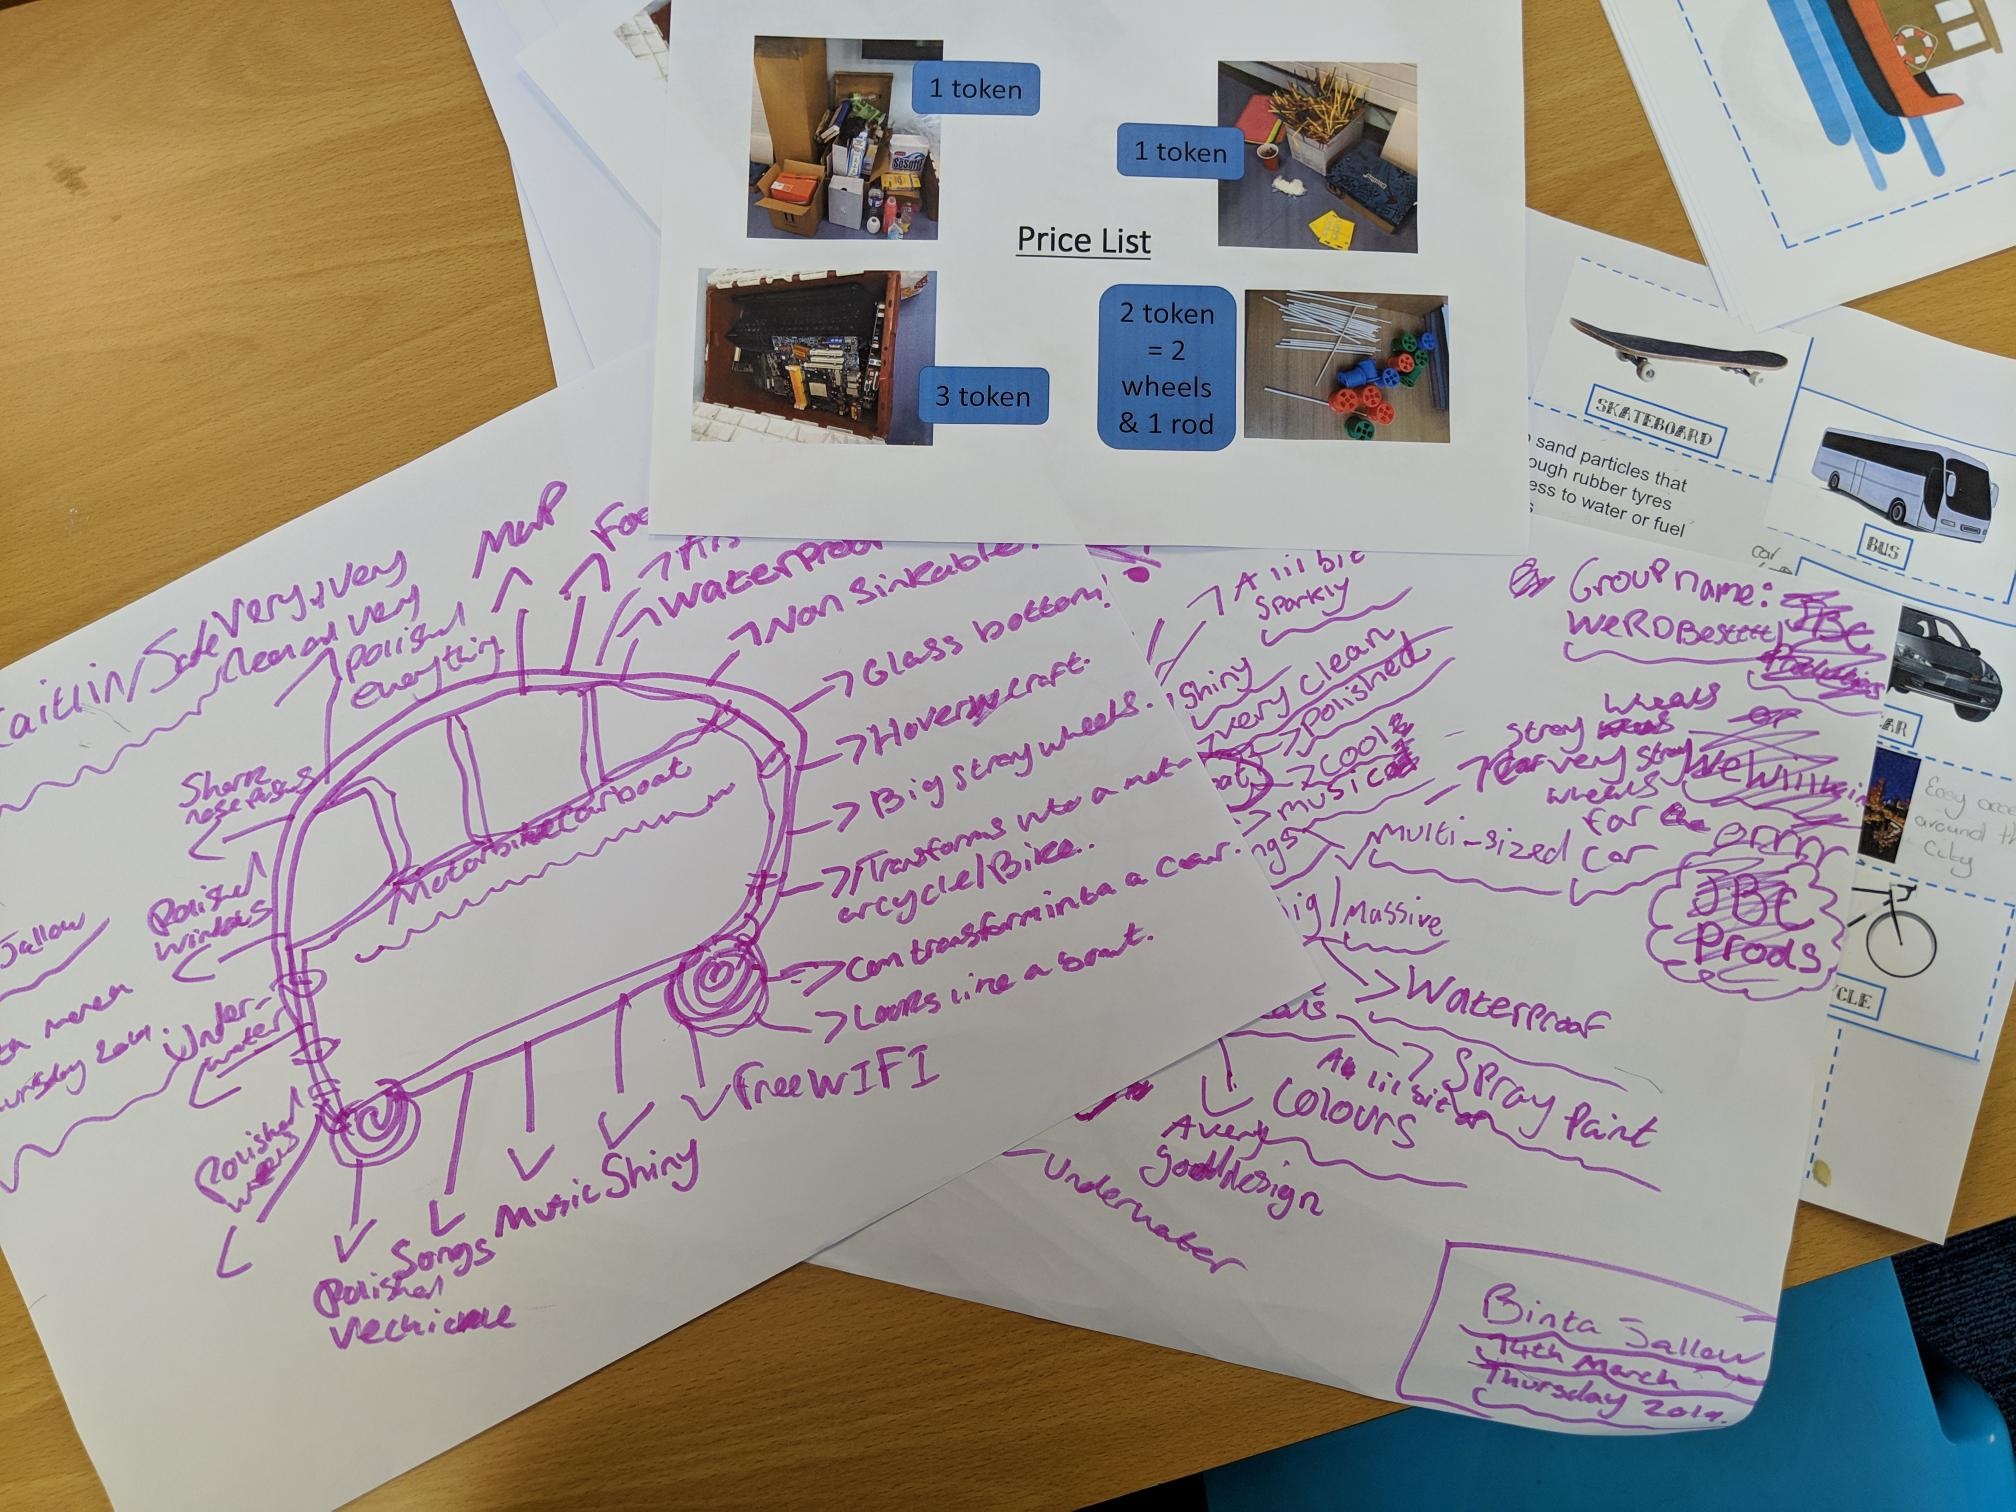 1 token
1 token
Price List
3 token
2 token
= 2
wheels
& 1 rod
SKATEBOARD
sand particles that
ough rubber tyres
ess to water or fuel
BUS
car
AR
Easy acce
around th
City
CLE
Kaitlin/Safe
Very, very
clean and very
polished
everything
Map
Foo
Waterproof
Non Sinkable!
Glass bottom!
Hovercraft.
Big stray wheels.
Transforms into a mot-
orcycle/Bike.
Can transform into a car.
Looks like a boat.
Free WIFI
Shiny
Music
Songs
Polished
Vechicle
Polished
Under-
water
Polished
windows
Shark
Motorbikecarboat
Jallow
A lil bit
Sparkly
Shiny
Very Clean
Polished
Cool
music
ngs
Multi-sized car
ig/Massive
Waterproof
Spray Paint
A lil bit of
Colours
A very
good design
Underwater
Group name:
WeRDBestttt
JBC
wheels
stray
Car very stray
wheels
for
We Will
ermm
JBC
Prods
Binta Jallow
14th March
Thursday 2019.